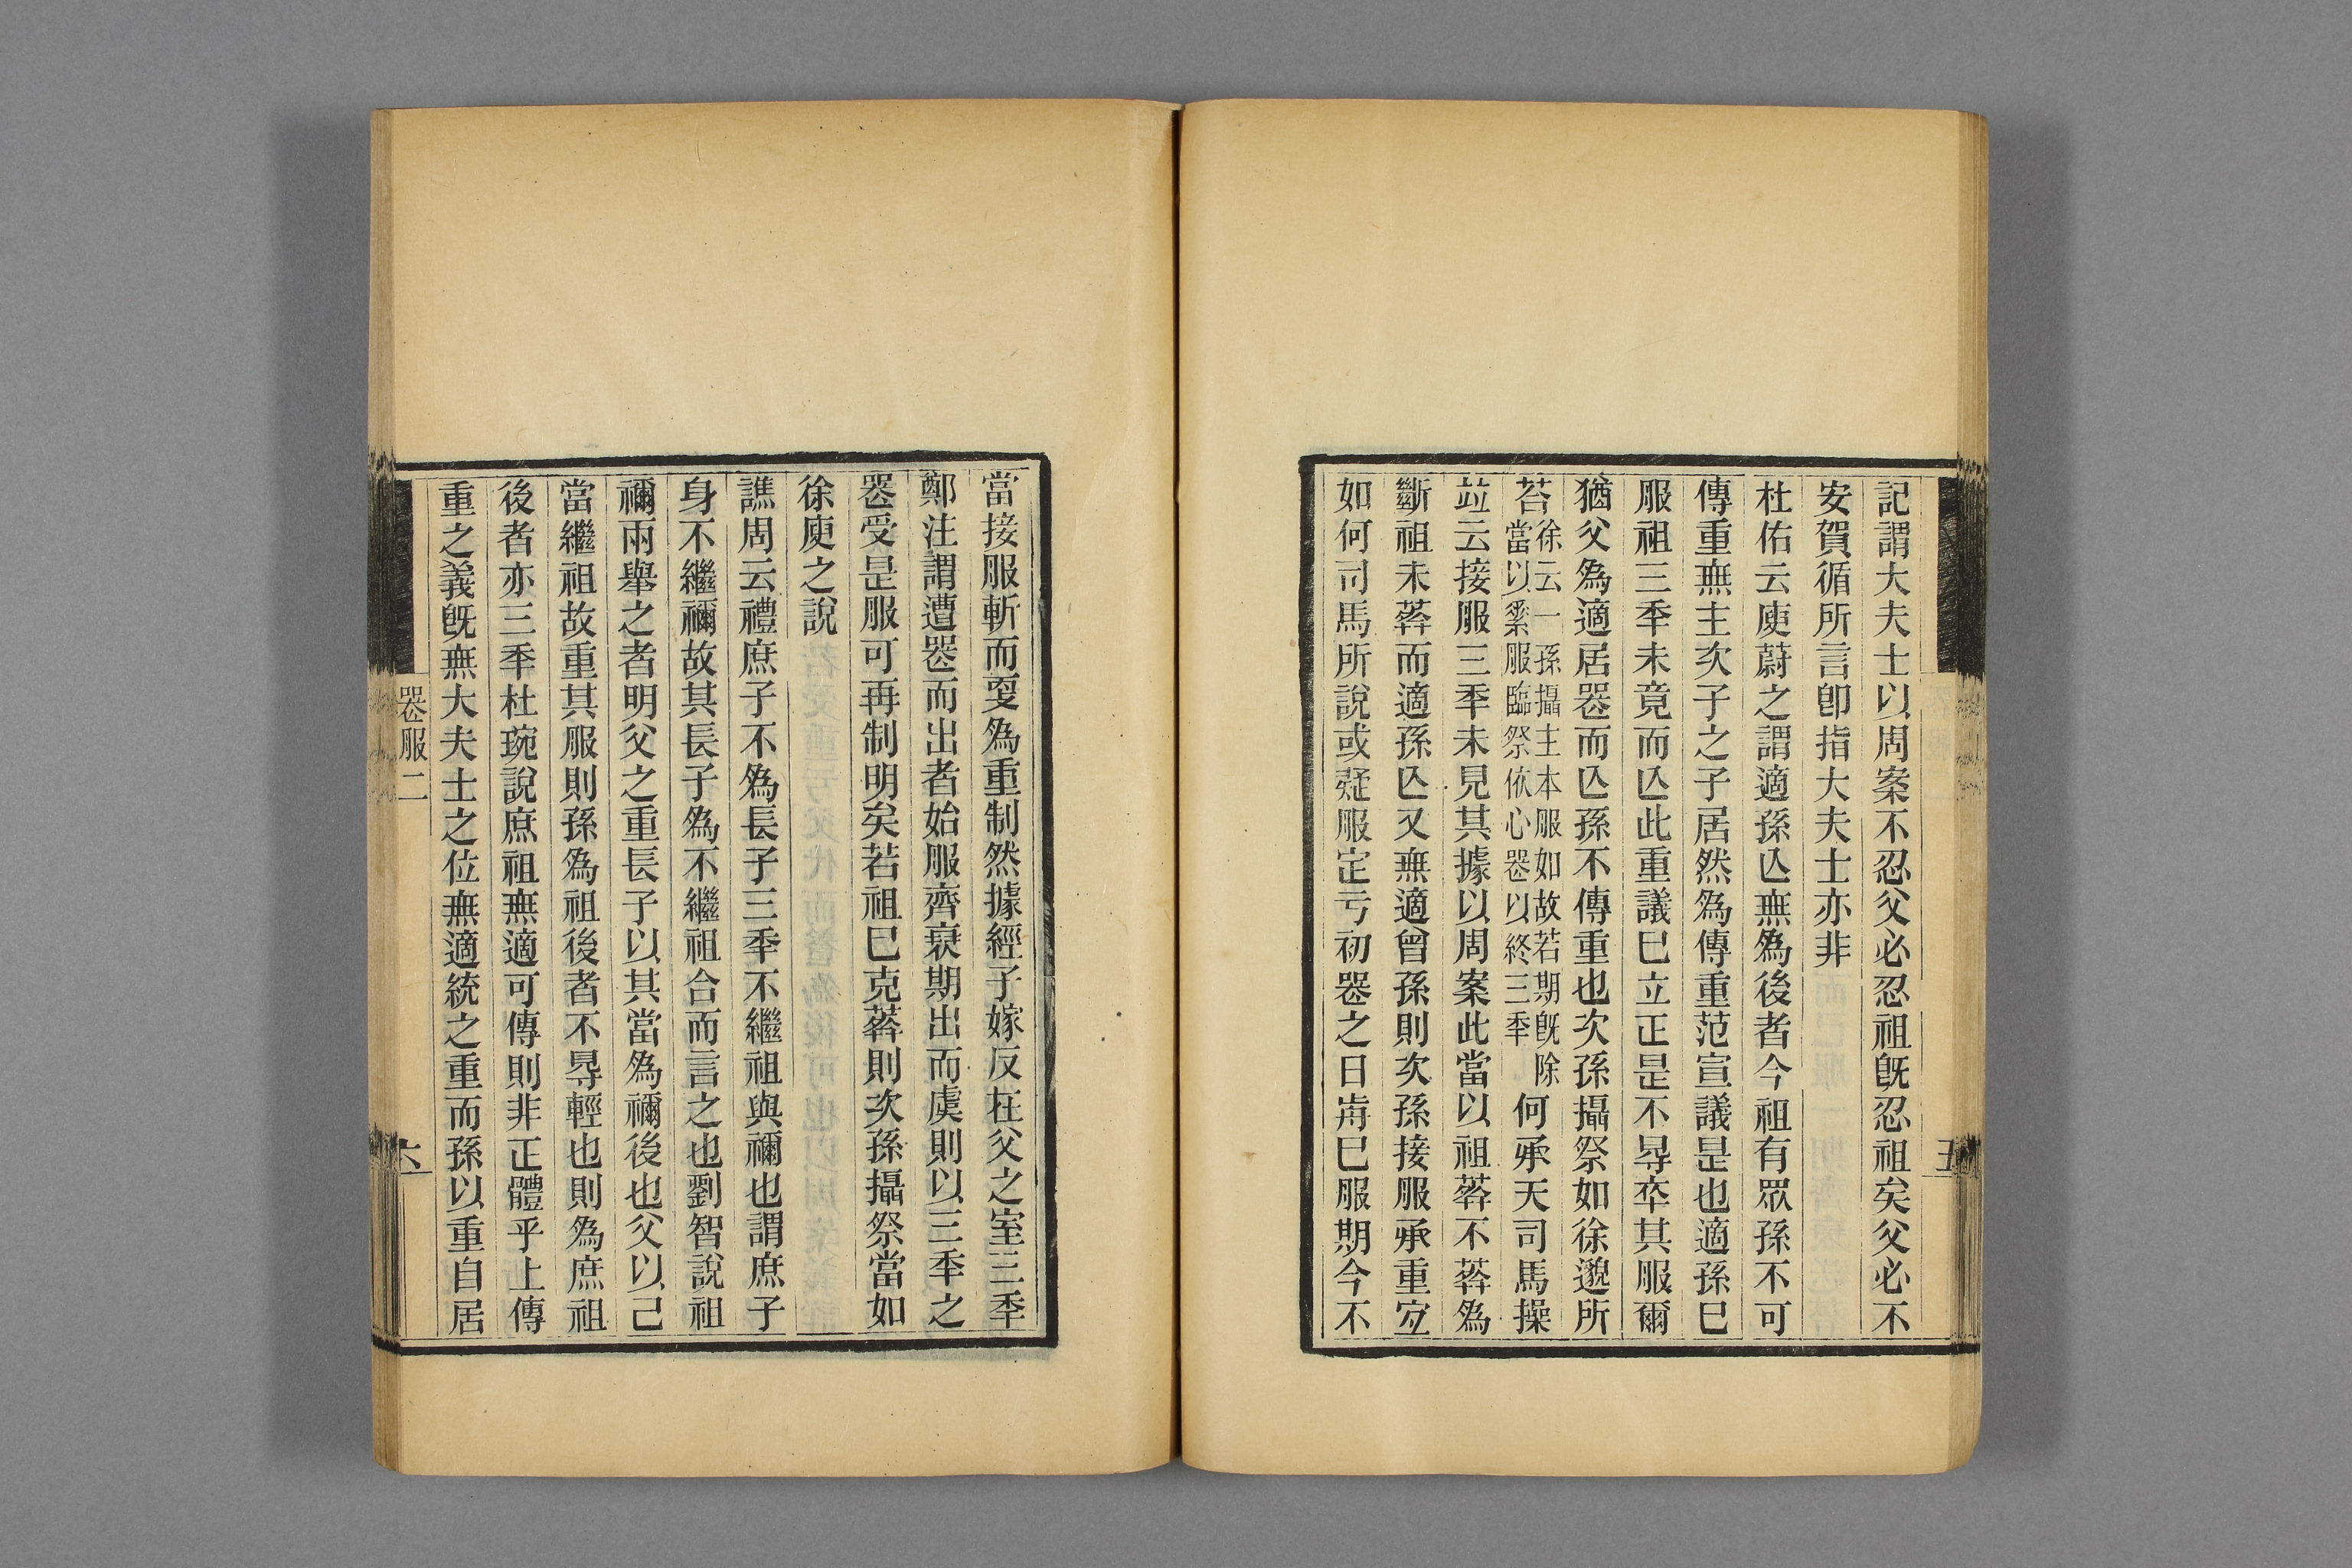 記謂大夫士以周案不忍父必忍祖旣忍祖矣父必不
安賀循所言卽指大夫士亦非
杜佑云庾蔚之謂適孫亾無爲後者今祖有眾孫不可
傳重無主次子之子居然爲傳重范宣議是也適孫已
服祖三秊未竟而亾此重議已立正是不㝵卒其服爾
猶父爲適居器而亾孫不傳重也次孫攝祭如徐邈所
荅徐云一孫攝主本服如故若期旣除
當以纍服臨祭依心器以終三秊何承天司馬操
竝云接服三秊未見其據以周案此當以祖葬不葬爲
斷祖未葬而適孫亾又無適曾孫則次孫接服承重宐
如何司馬所說或疑服定亏初器之日歬已服期今不
當接服斬而耎爲重制然據經子嫁反在父之室三秊
鄭注謂遭器而出者始服齊衰期出而虞則以三秊之
器受是服可再制明矣若祖已克葬則次孫攝祭當如
徐庾之說
譙周云禮庶子不爲長子三秊不繼祖與禰也謂庶子
身不繼禰故其長子爲不繼祖合而言之也劉智說祖
禰兩舉之者明父之重長子以其當爲禰後也父以己
當繼祖故重其服則孫爲祖後者不㝵輕也則爲庶祖
後者亦三秊杜琬說庶祖無適可傳則非正體乎上傳
重之義旣無大夫士之位無適統之重而孫以重自居
器服二
六
五